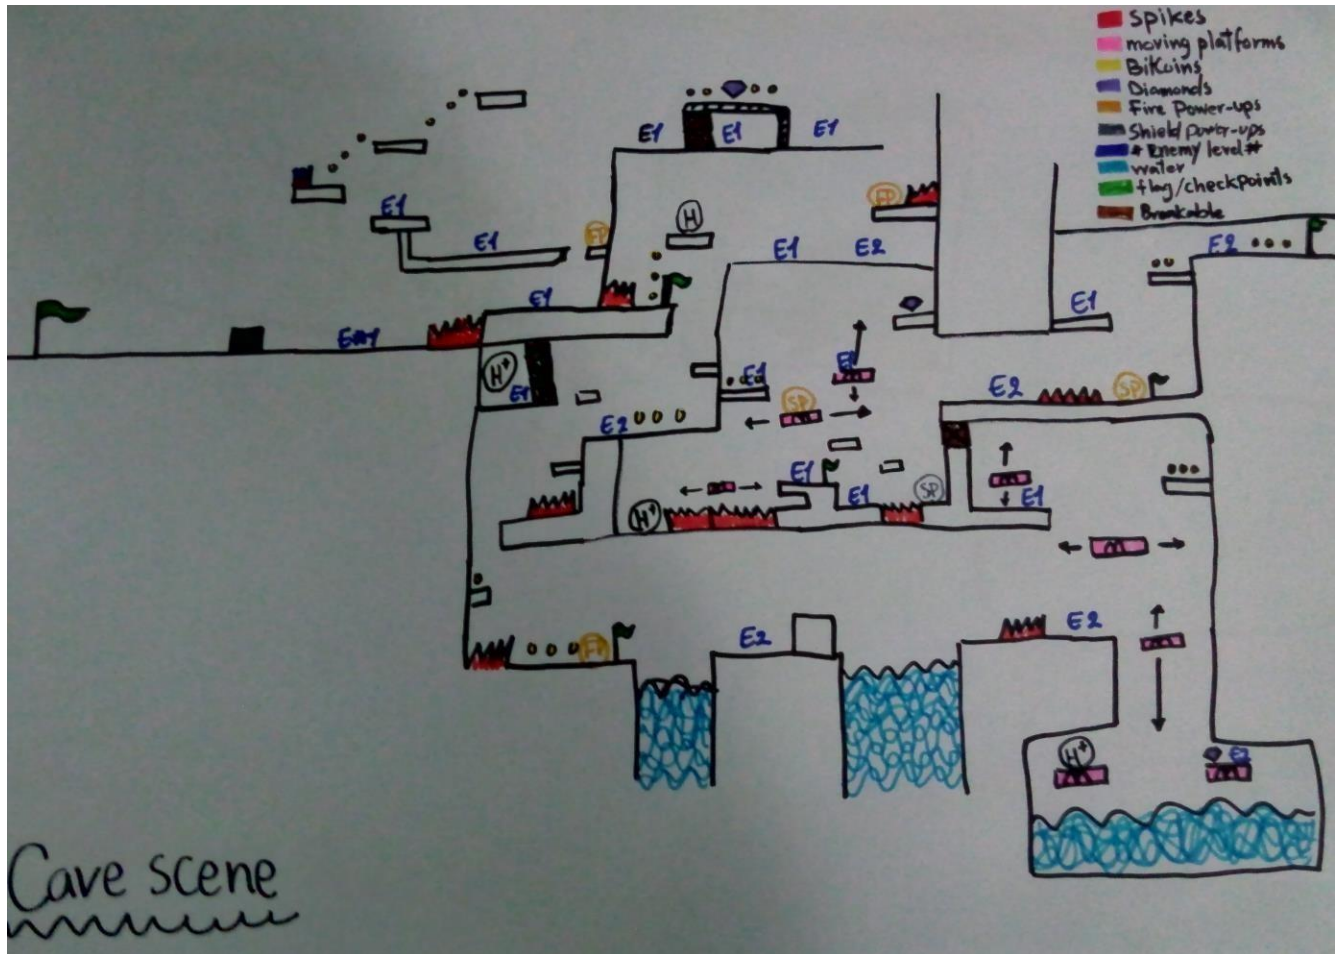 Spikes
moving platforms
BiKoins
Diamonds
Fire Power-ups
Shield power-ups
# Enemy level #
water
flag/checkpoints
Breakable
E1
E1
E1
FP
H
E1
E1
FP
E1
E2
E2
E1
E1
H+
E1
E1
E1
SP
E2
SP
E2
E1
E1
SP
E1
H+
FP
E2
E2
H+
E2
Cave scene